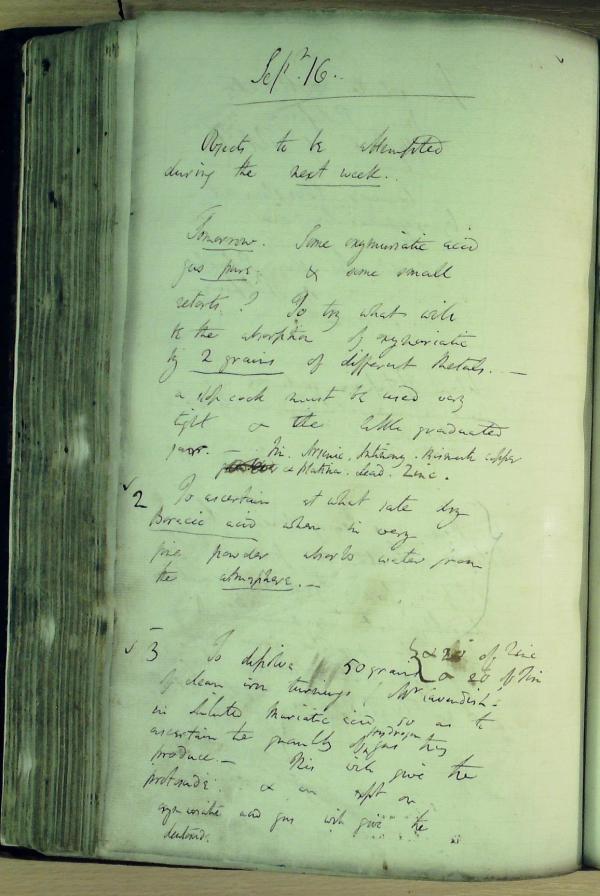 Sept. 16.
Objects to be attempted
during the next week.
Tomorrow. Some oxymuriatic acid
gas pure & some small
retorts? To try what will
be the absorption of oxymuriatic
by 2 grains of different Metals. —
a stop cock must be used very
tight & the little graduated
jar. — Tin. Arsenic. Antimony. Bismuth copper
& Platina. Lead. Zinc.
2 To ascertain at what rate dry
Boracic acid when in very
fine powder absorbs water from
the atmosphere. —
3 To dissolve 50 grains & 20 of Zinc
of clean iron turnings & 20 of Tin
Mr Cavendish's
in diluted Muriatic acid so as to
ascertain the quantity of hydrogen gas they
produce. — This will give the
protoxide. & an expt on
oxymuriatic acid gas will give the
deutoxide.